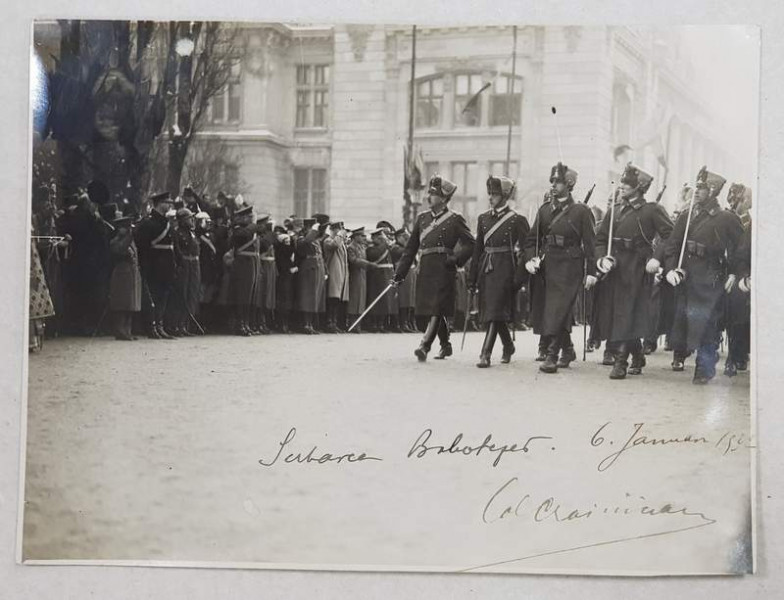 Serbarea Bobotezei. 6. Januari
Col Crainiceanu